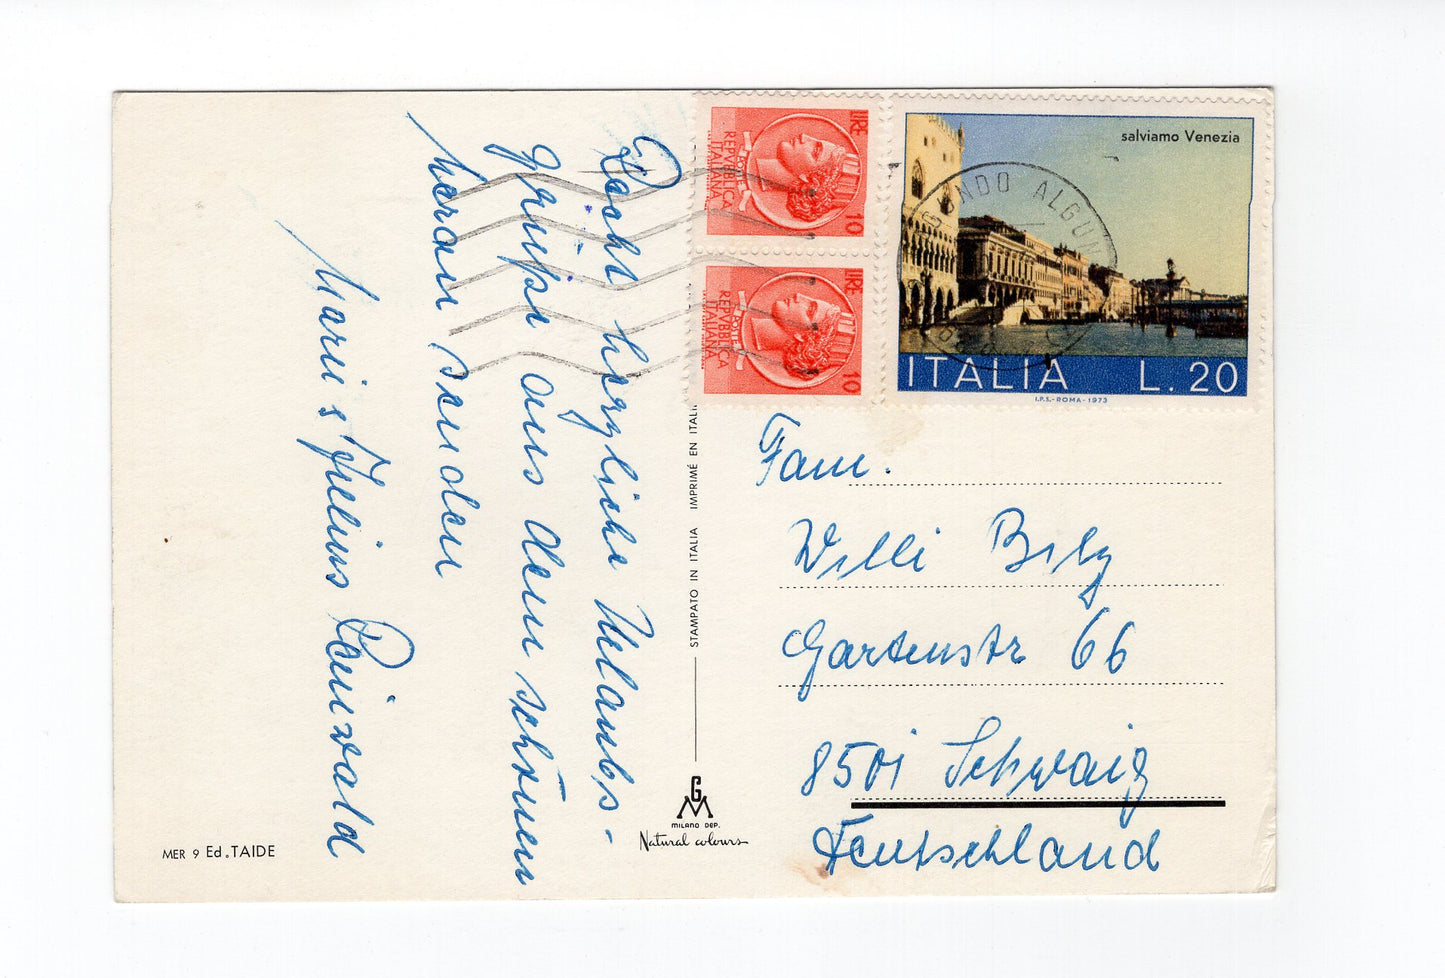 Recht herzliche Urlaubs-
grüße aus dem schönen
Meran senden
Marie & Julius Rainwald
MER 9 Ed. TAIDE
STAMPATO IN ITALIA IMPRIMÉ EN ITALIE
GM
MILANO DEP.
Natural colours
LIRE 10
POSTE
REPVBBLICA
ITALIANA
LIRE 10
POSTE
REPVBBLICA
ITALIANA
salviamo Venezia
ITALIA L. 20
I.P.S.-ROMA-1973
Fam.
Willi
Gartenstr 66
8501 Schwaig
Deutschland